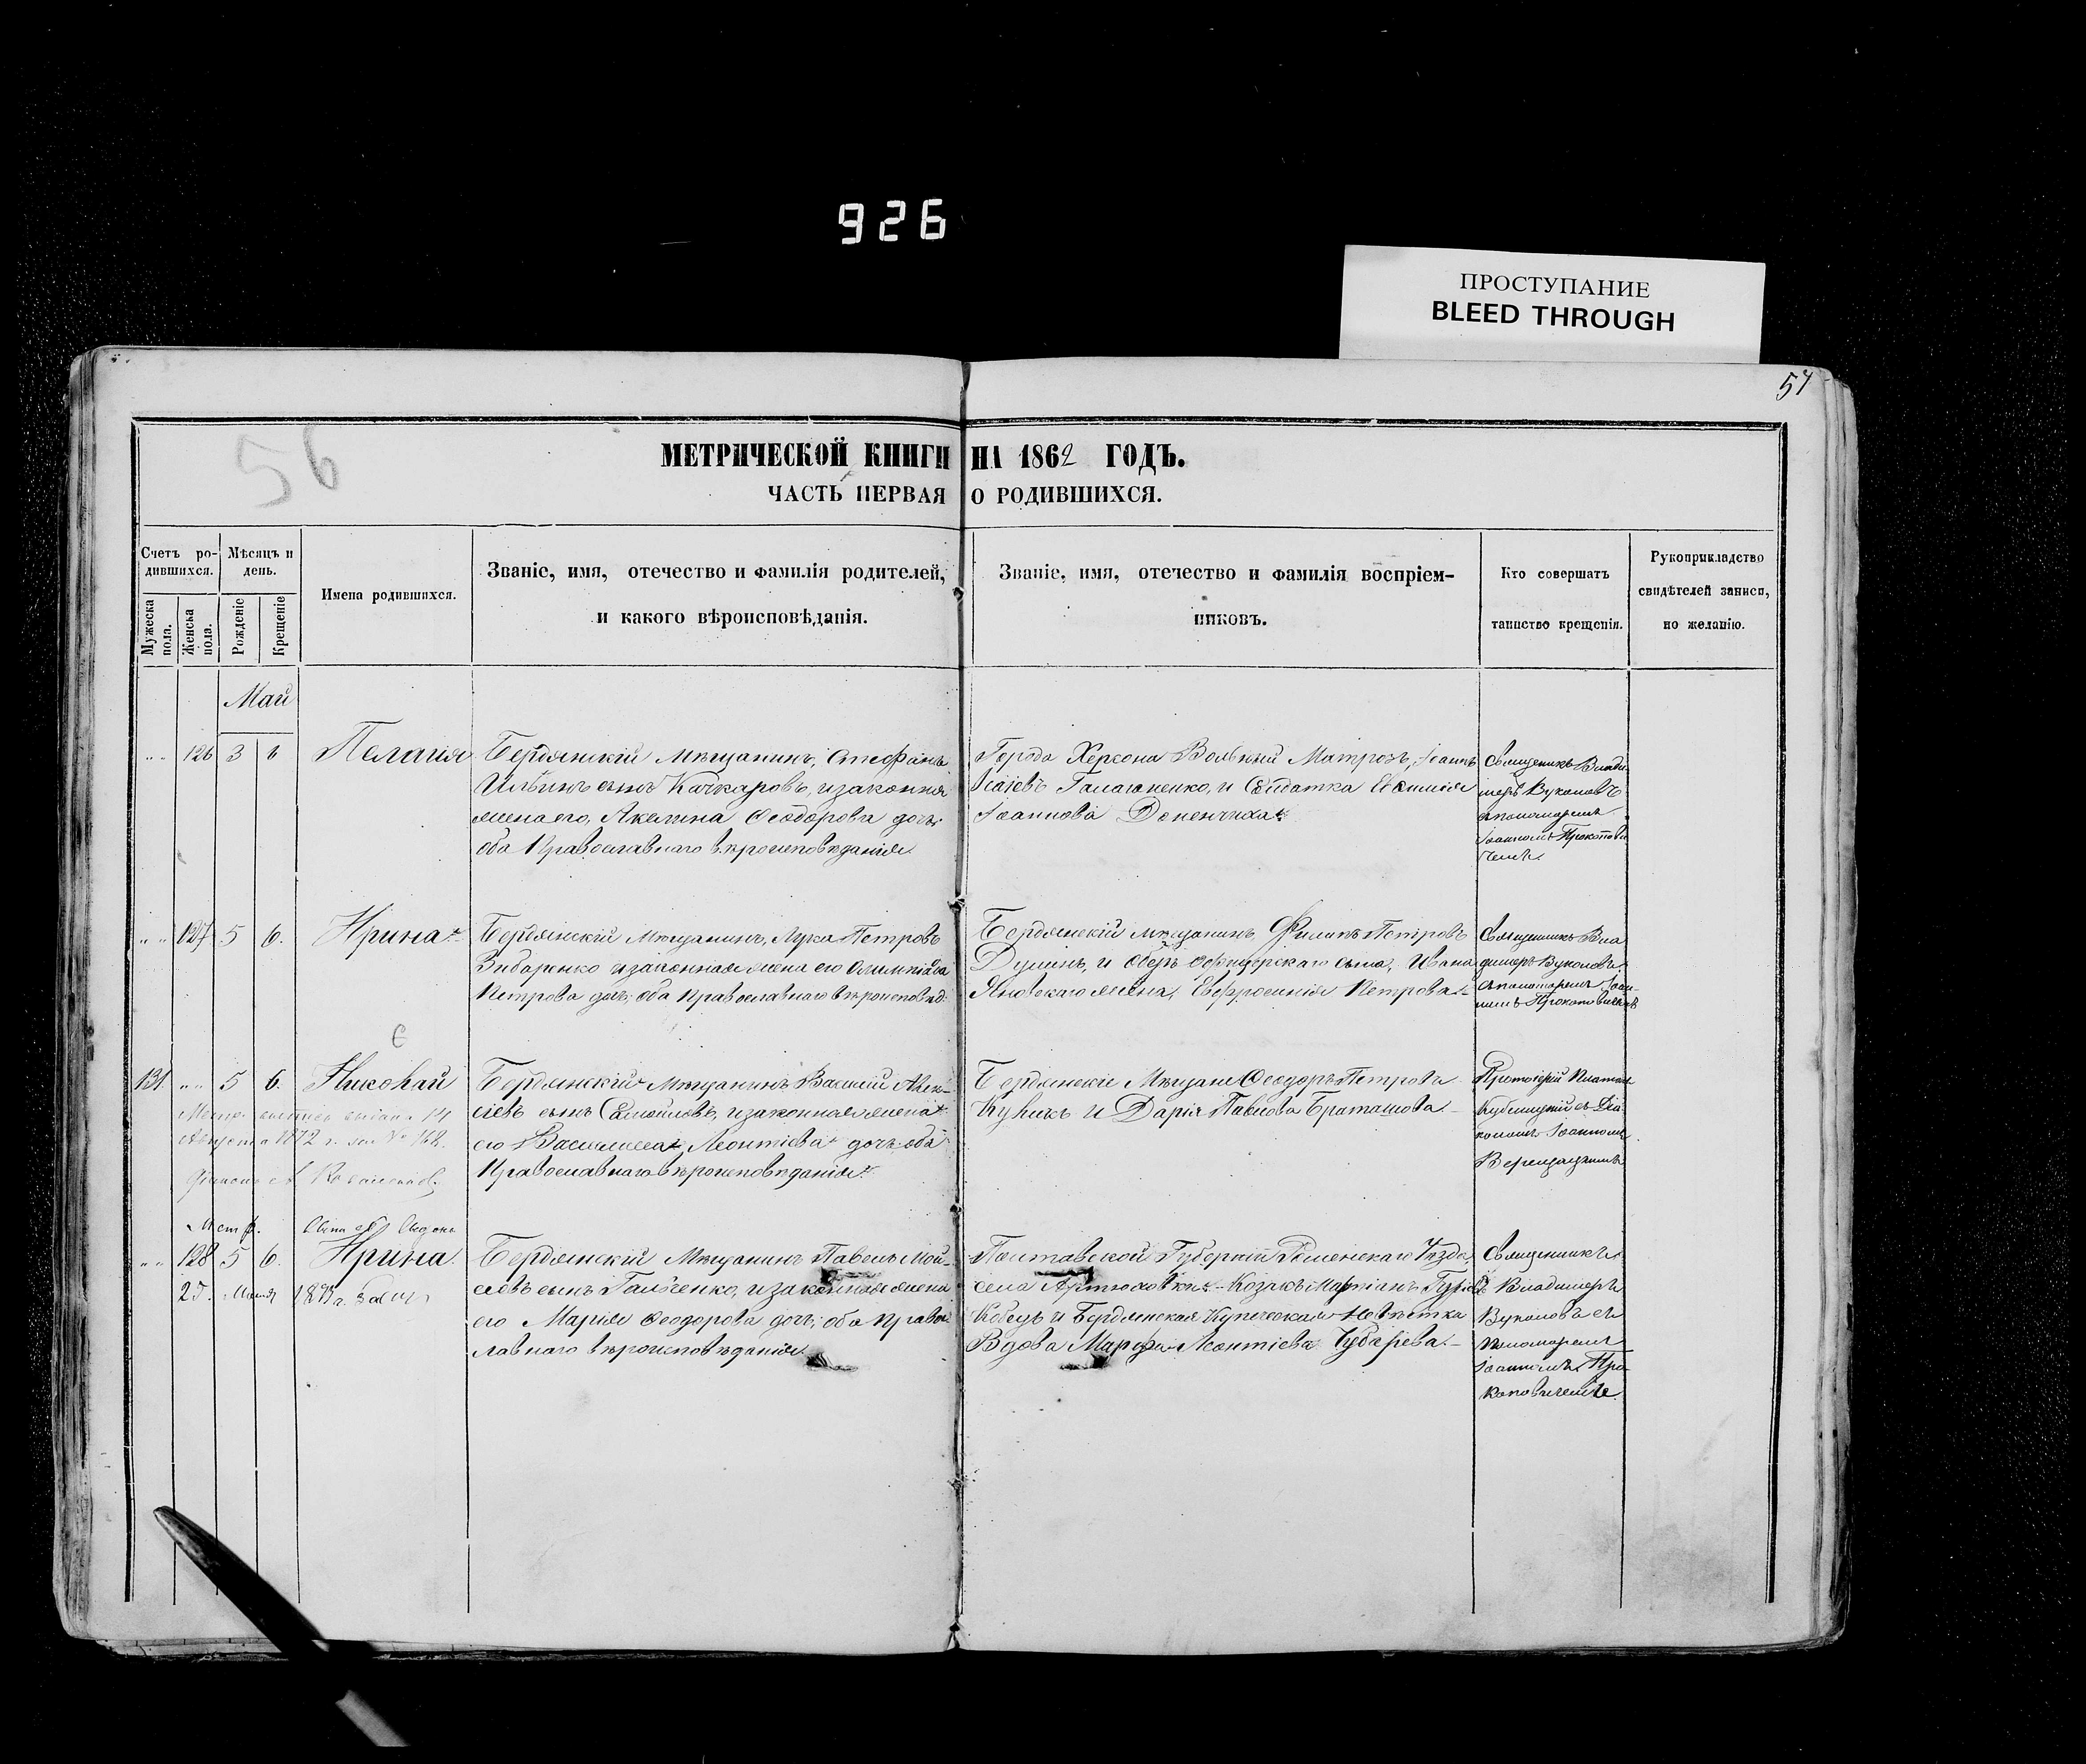 926
ПРОСТУПАНИЕ
BLEED THROUGH
57
56
МЕТРИЧЕСКОЙ КНИГИ НА 1862 ГОДЪ.
ЧАСТЬ ПЕРВАЯ О РОДИВШИХСЯ.
Счетъ ро-
дившихся.
Мѣсяцъ и
день.
Мужеска
пола.
Женска
пола.
Рожденіе
Крещеніе
Имена родившихся.
Званіе, имя, отечество и фамилія родителей,
и какого вѣроисповѣданія.
Званіе, имя, отечество и фамилія воспріем-
никовъ.
Кто совершатъ
таинство крещенія.
Рукоприкладство
свидѣтелей записи,
по желанію.
Май
126 3 6 Пелагія
Бердянскій Мѣщанинъ, Стефанъ
Ильинъ сынъ Качкаровъ, и законная
жена его, Акилина Ѳеодорова дочь;
оба Православнаго вѣроисповѣданія.
Города Херсона Вольный Матрозъ, Іоаннъ
Исаіевъ и Солдатка Евфимія
Іоаннова
Священникъ Влади-
меръ Вуколовъ
съ пономаремъ
Іоанномъ Прокопови-
чемъ.
127 5 6. Ирина
Бердянскій Мѣщанинъ, Лука Петровъ
Зибаренко и законная жена его Олимпіада
Петрова дочь; оба Православнаго вѣроисповѣд.
Бердянскій мѣщанинъ, Филипъ Петровъ
и Оберъ Офицерскаго сына, Ивана
Яновскаго жена, Евфросинія Петрова
Священникъ Вла
димеръ Вуколовъ
съ пономаремъ Іоан-
номъ Прокоповичемъ
131. 5 6. Николай
Бердянскій Мѣщанинъ Василій Алек-
сіевъ сынъ Самойловъ, и законная жена
его Василисса Леонтіева дочь: оба
Православнаго вѣроисповѣданія.
Бердянскіе Мѣщане Ѳеодоръ Петровъ
Куликъ и Дарія Павлова Браташова
Протоіерей Платонъ
Кублицкій съ Діа
кономъ Іоанномъ
Верещацкимъ
Метр. выпись выдана 14
Августа 1872 г. за № 168.
128 5 6. Ирина.
Бердянскій Мѣщанинъ Павелъ Мой-
сеевъ сынъ Гальченко, и законная жена
его Марія Ѳеодорова дочь; оба Право-
славнаго вѣроисповѣданія
Полтавской Губерніи Роменскаго Уѣзда,
села Артюховки Козакъ
Кобецъ и Бердянская Купеческая Невѣстка
Вдова Марфа Леонтіева Чубарева
Священникъ
Владимеръ
Вуколовъ съ
пономаремъ
Іоанномъ Про-
коповичемъ.